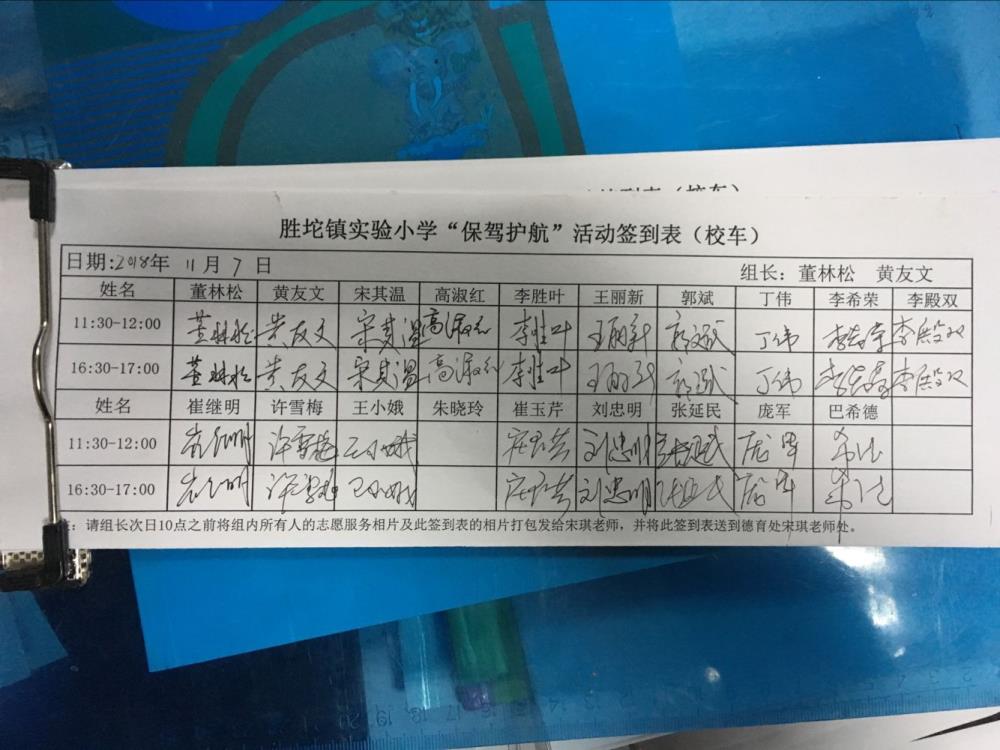 胜坨镇实验小学“保驾护航”活动签到表（校车）
日期:2018年 11月 7日 组长：董林松 黄友文
姓名 董林松 黄友文 宋其温 高淑红 李胜叶 王丽新 郭斌 丁伟 李希荣 李殿双
11:30-12:00 董林松 黄友文 宋其温 高淑红 李胜叶 王丽新 郭斌 丁伟 李希荣 李殿双
16:30-17:00 董林松 黄友文 宋其温 高淑红 李胜叶 王丽新 郭斌 丁伟 李希荣 李殿双
姓名 崔继明 许雪梅 王小娥 朱晓玲 崔玉芹 刘忠明 张延民 庞军 巴希德
11:30-12:00 崔继明 许雪梅 王小娥 刘忠明 庞军
16:30-17:00 崔继明 许雪梅 王小娥 刘忠明 庞军
：请组长次日10点之前将组内所有人的志愿服务相片及此签到表的相片打包发给宋琪老师，并将此签到表送到德育处宋琪老师处。